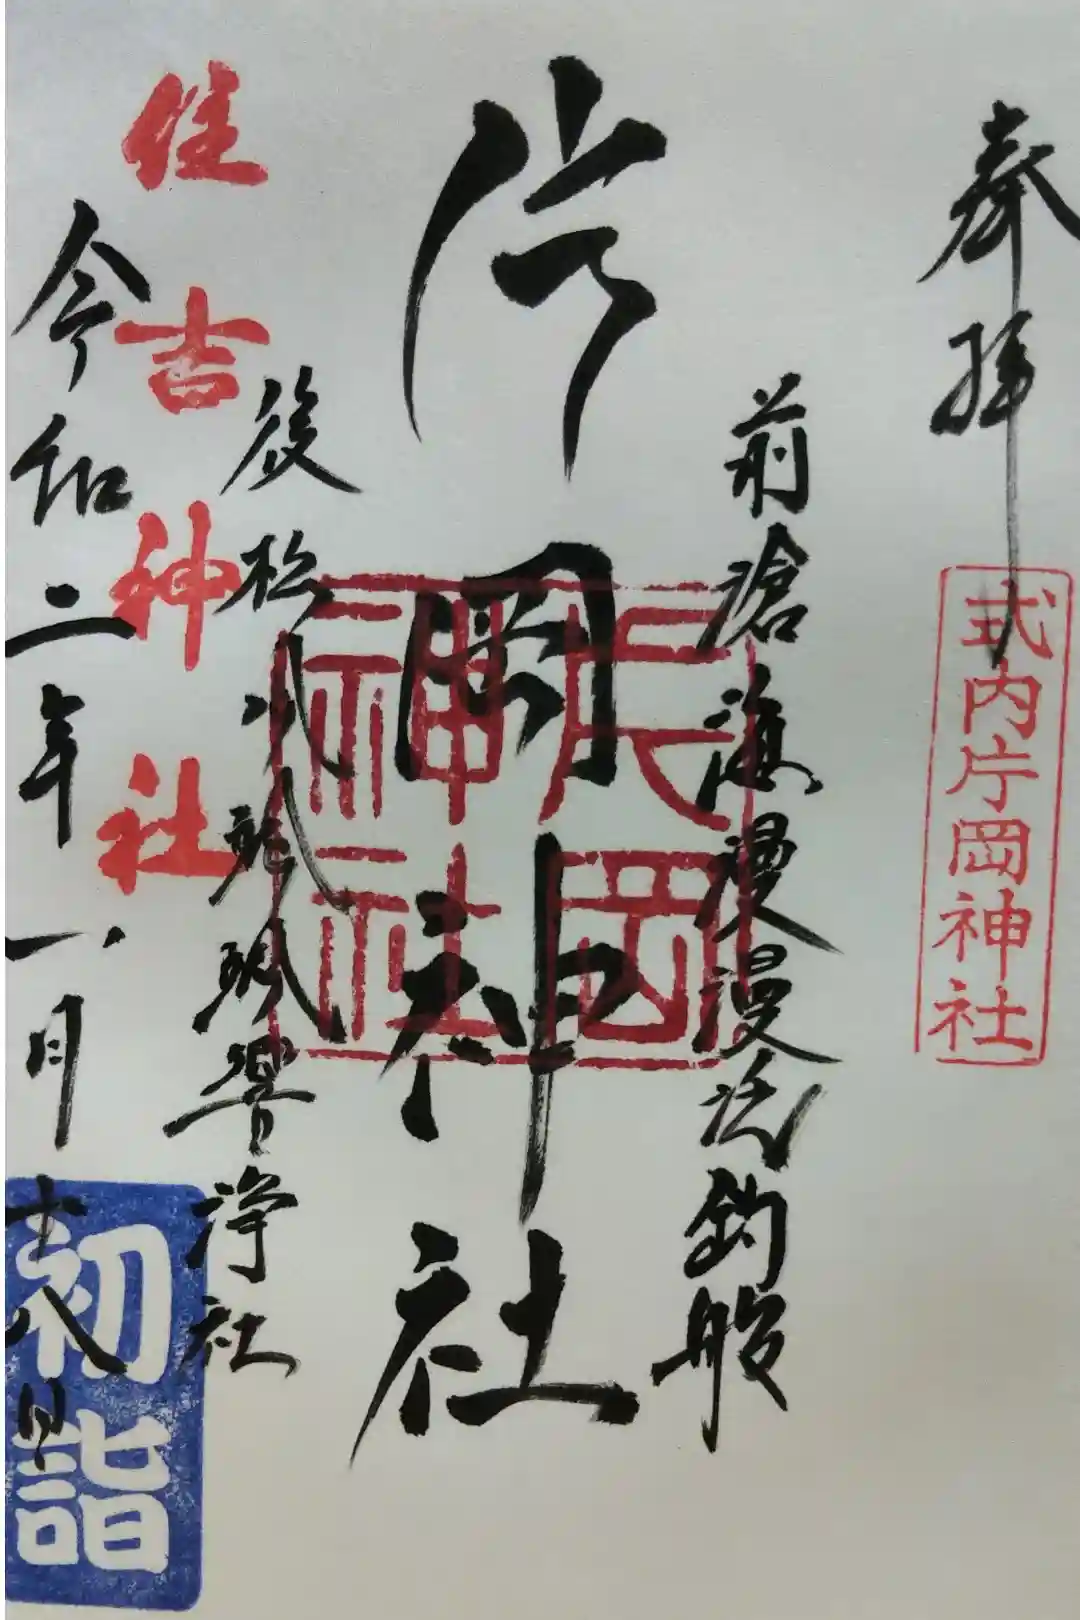 奉拝
式内片岡神社
前滄海漫漫泛釣船
片岡神社
片岡神社
後松
浄社
住吉神社
令和二年一月十八日
初詣